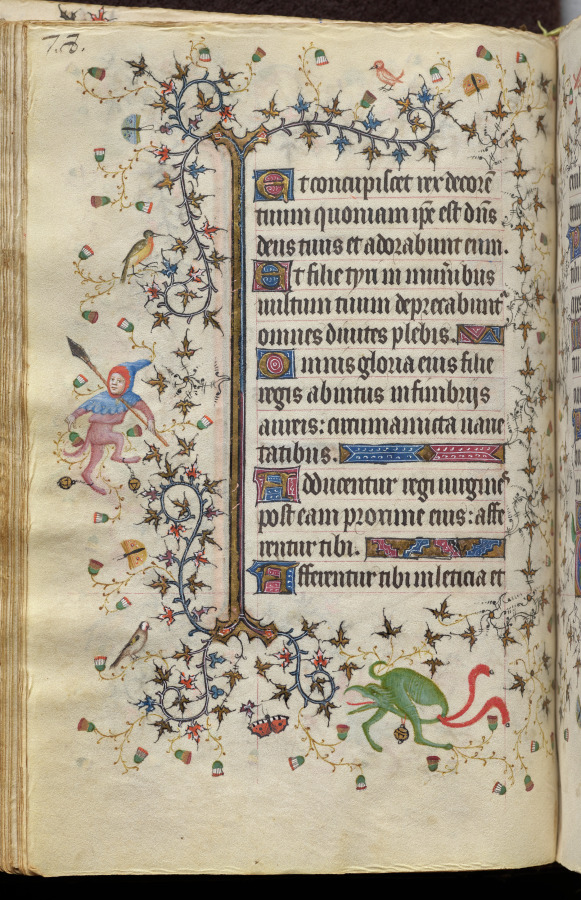 73.
Et concupiscet rex decorē
tuum quoniam ip̄e est dn̄s
deus tuus et adorabunt eum.
Et filie tyri in mun̄ibus
vultum tuum deprecabunt᷑
omnes divites plebis.
Omnis gloria eius filie
regis abintus in fimbriis
aureis: circumamicta varie
tatibus.
Adducentur regi virgines
post eam proxime eius: affe
rentur tibi.
Afferentur tibi in leticia et